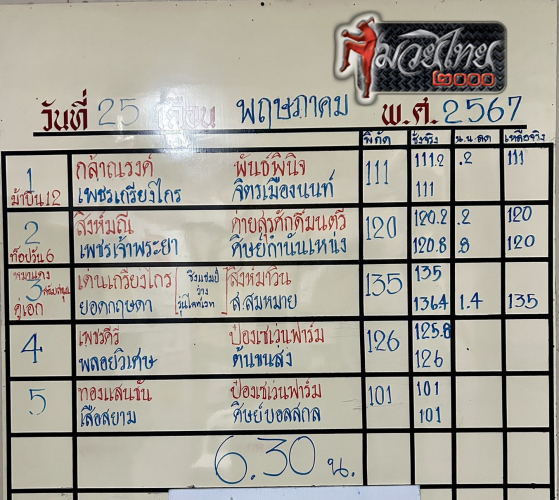 มวยไทย
๒๐๐๐
วันที่ 25 เดือน พฤษภาคม พ.ศ. 2567
พิกัด ชั่งจริง น.น.ลด เหลือจริง
1 กล้าณรงค์ พันธ์พินิจ 111 111.2 .2 111
ม้าบิน 12 เพชรเกรียงไกร จิตรเมืองนนท์ 111
2 สิงห์มณี ค่ายสุรศักดิ์มนตรี 120 120.2 .2 120
ท็อปวัน 6 เพชรเจ้าพระยา ศิษย์กำนันเหน่ง 120.8 .8 120
3 เด่นเกรียงไกร ชิงแชมป์ ว่าง สิงห์มาวิน 135 135
คู่เอก ยอดกฤษดา ส.สมหมาย 136.4 1.4 135
4 เพชรคีรี ป๋องเซเว่นฟาร์ม 126 125.8
พลอยวิเศษ ต้นขนส่ง 126
5 ทองแสนชัน ป๋องเซเว่นฟาร์ม 101 101
เสือสยาม ศิษย์บอลสกล 101
6.30 น.